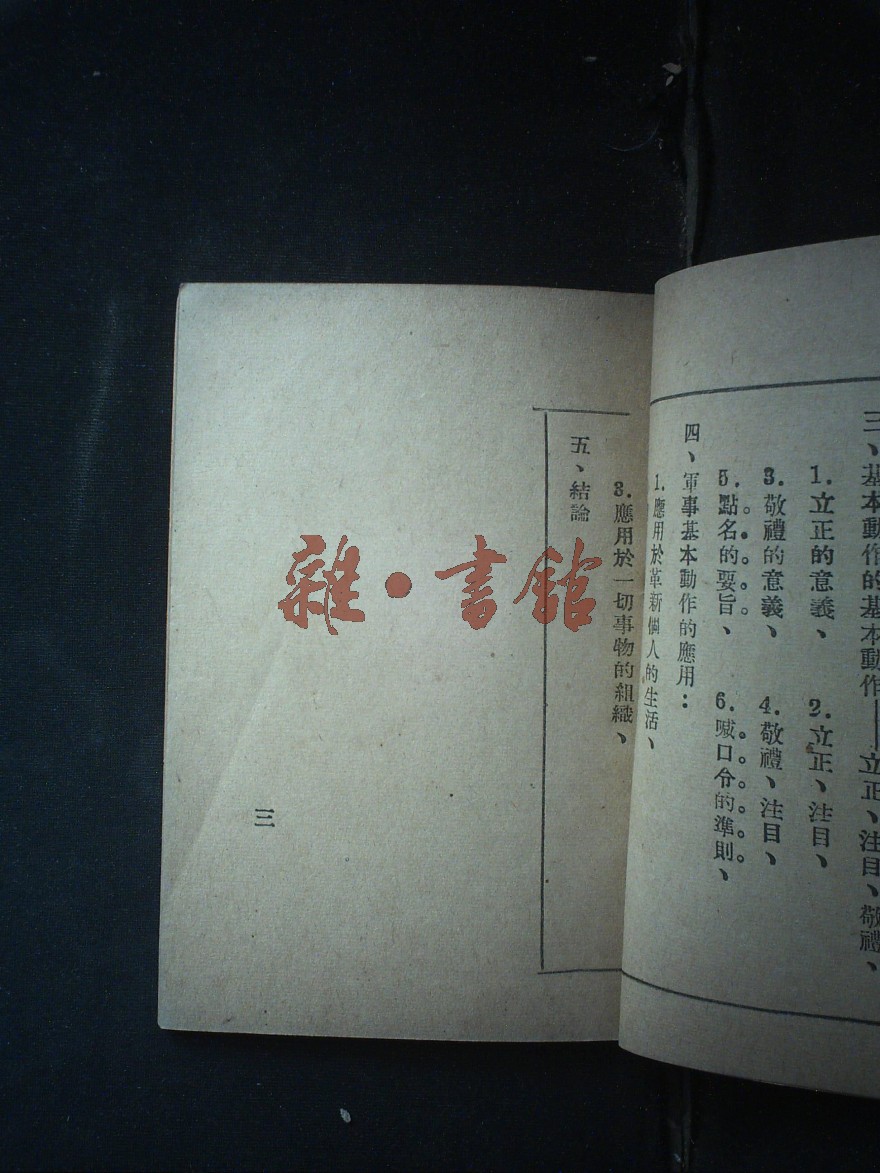 三、基本動作的基本動作——立正、注目、敬禮、
1.立正的意義、 2.立正、注目、
3.敬禮的意義、 4.敬禮、注目、
5.點名的要旨、 6.喊口令的準則、
四、軍事基本動作的應用：
1.應用於革新個人的生活、
3.應用於一切事物的組織、
五、結論
三
雜·書館